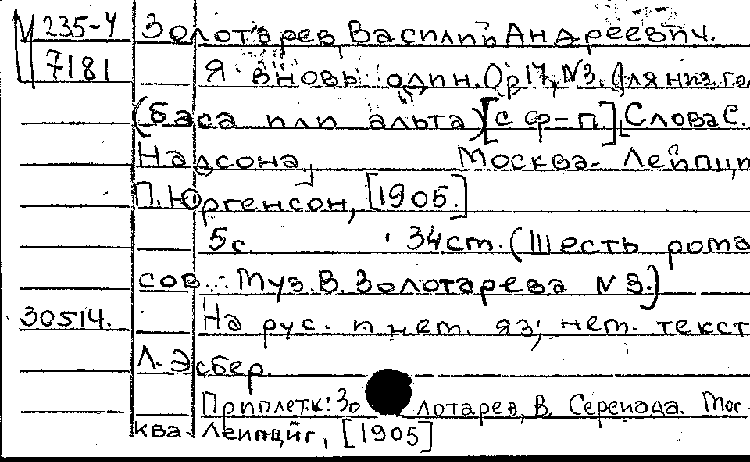 М 235-4 Золотарев, Василий Андреевич.
7181 Я вновь один. Ор 17, №3. Для низ. го
(баса или альта) [с ф-п], Слова С.
Надсона, Москва- Лейпци
П. Юргенсон, [1905.]
5с. 34ст. (Шесть рома
сов. Муз. В. Золотарева №3.)
30514. На рус. и нем. яз; нем. текст
Л. Эсбер.
Приплет.к: Золотарев, В. Серенада. Мос-
ква- Лейпциг, [1905]